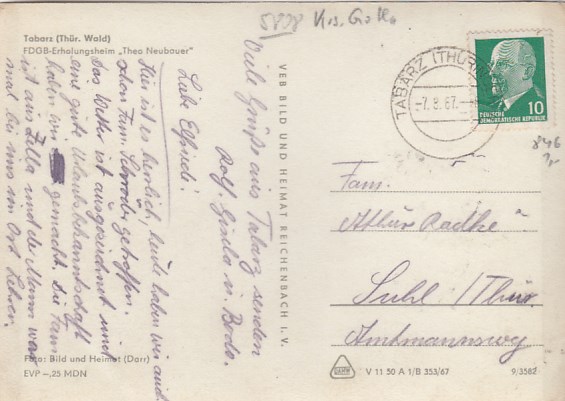 Tabarz (Thür. Wald)
FDGB-Erholungsheim „Theo Neubauer"
5808 Krs. Gotha
TABARZ (THÜR
-7.8.67.
10
DEUTSCHE
DEMOKRATISCHE REPUBLIK
846
Viele Grüße aus Tabarz senden
Rolf Gisela u.
Liebe Elfriede!
Hier ist es herrlich, heute haben wir auch
schon Fam. getroffen.
Das Wetter ist ausgezeichnet und
eine gute Urlaubsbekanntschaft
haben wir gemacht. Die Fam
ist aus Zella und der Mann war
mal bei uns im Ort Lehrer.
VEB BILD UND HEIMAT REICHENBACH I. V.
Fam.
Arthur Radke
Suhl /Thür.
Amtmannsweg
Foto: Bild und Heimat (Darr)
EVP –,25 MDN
V 11 50 A 1/B 353/67
9/3582